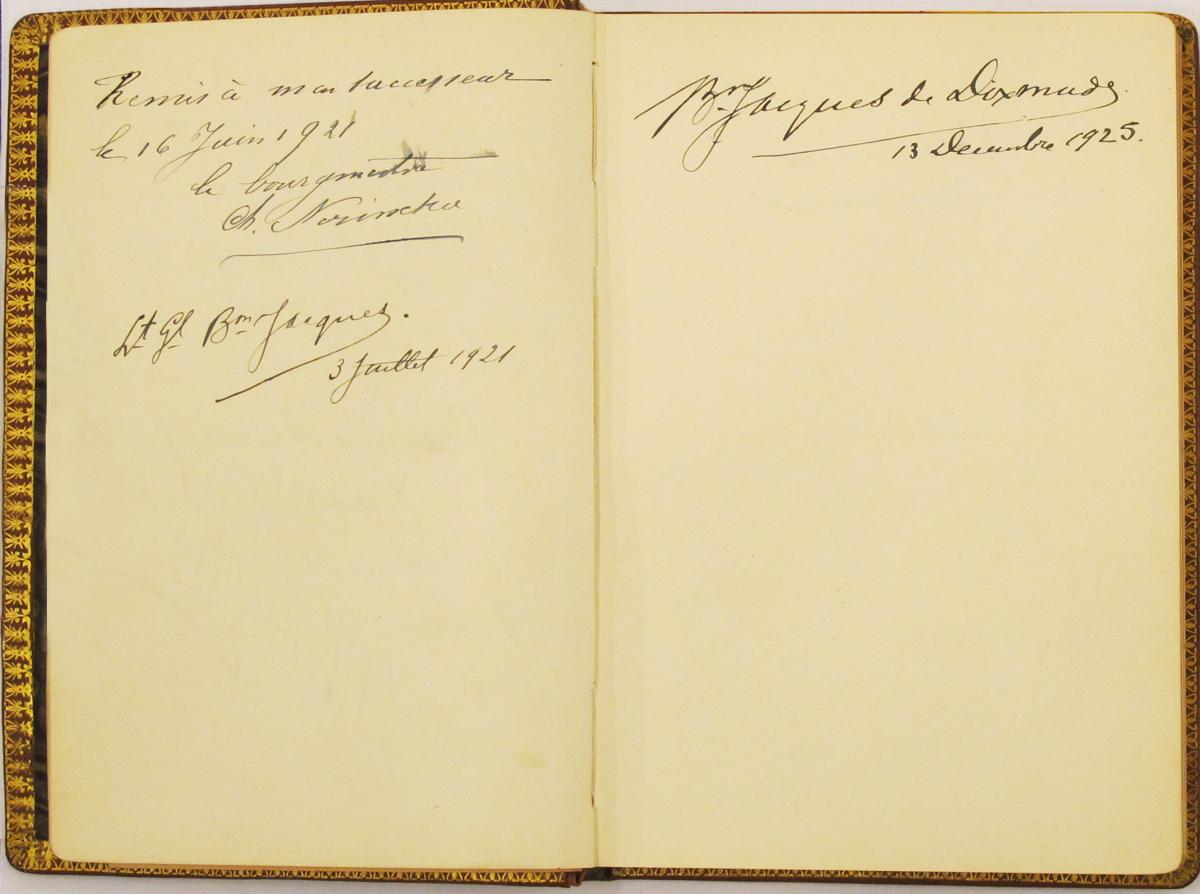 Remis à mon successeur
le 16 Juin 1921
le bourgmestre
Ch.
Lt Gl Bon Jacques.
3 Juillet 1921
Bon Jacques de Dixmude
13 Decembre 1925.